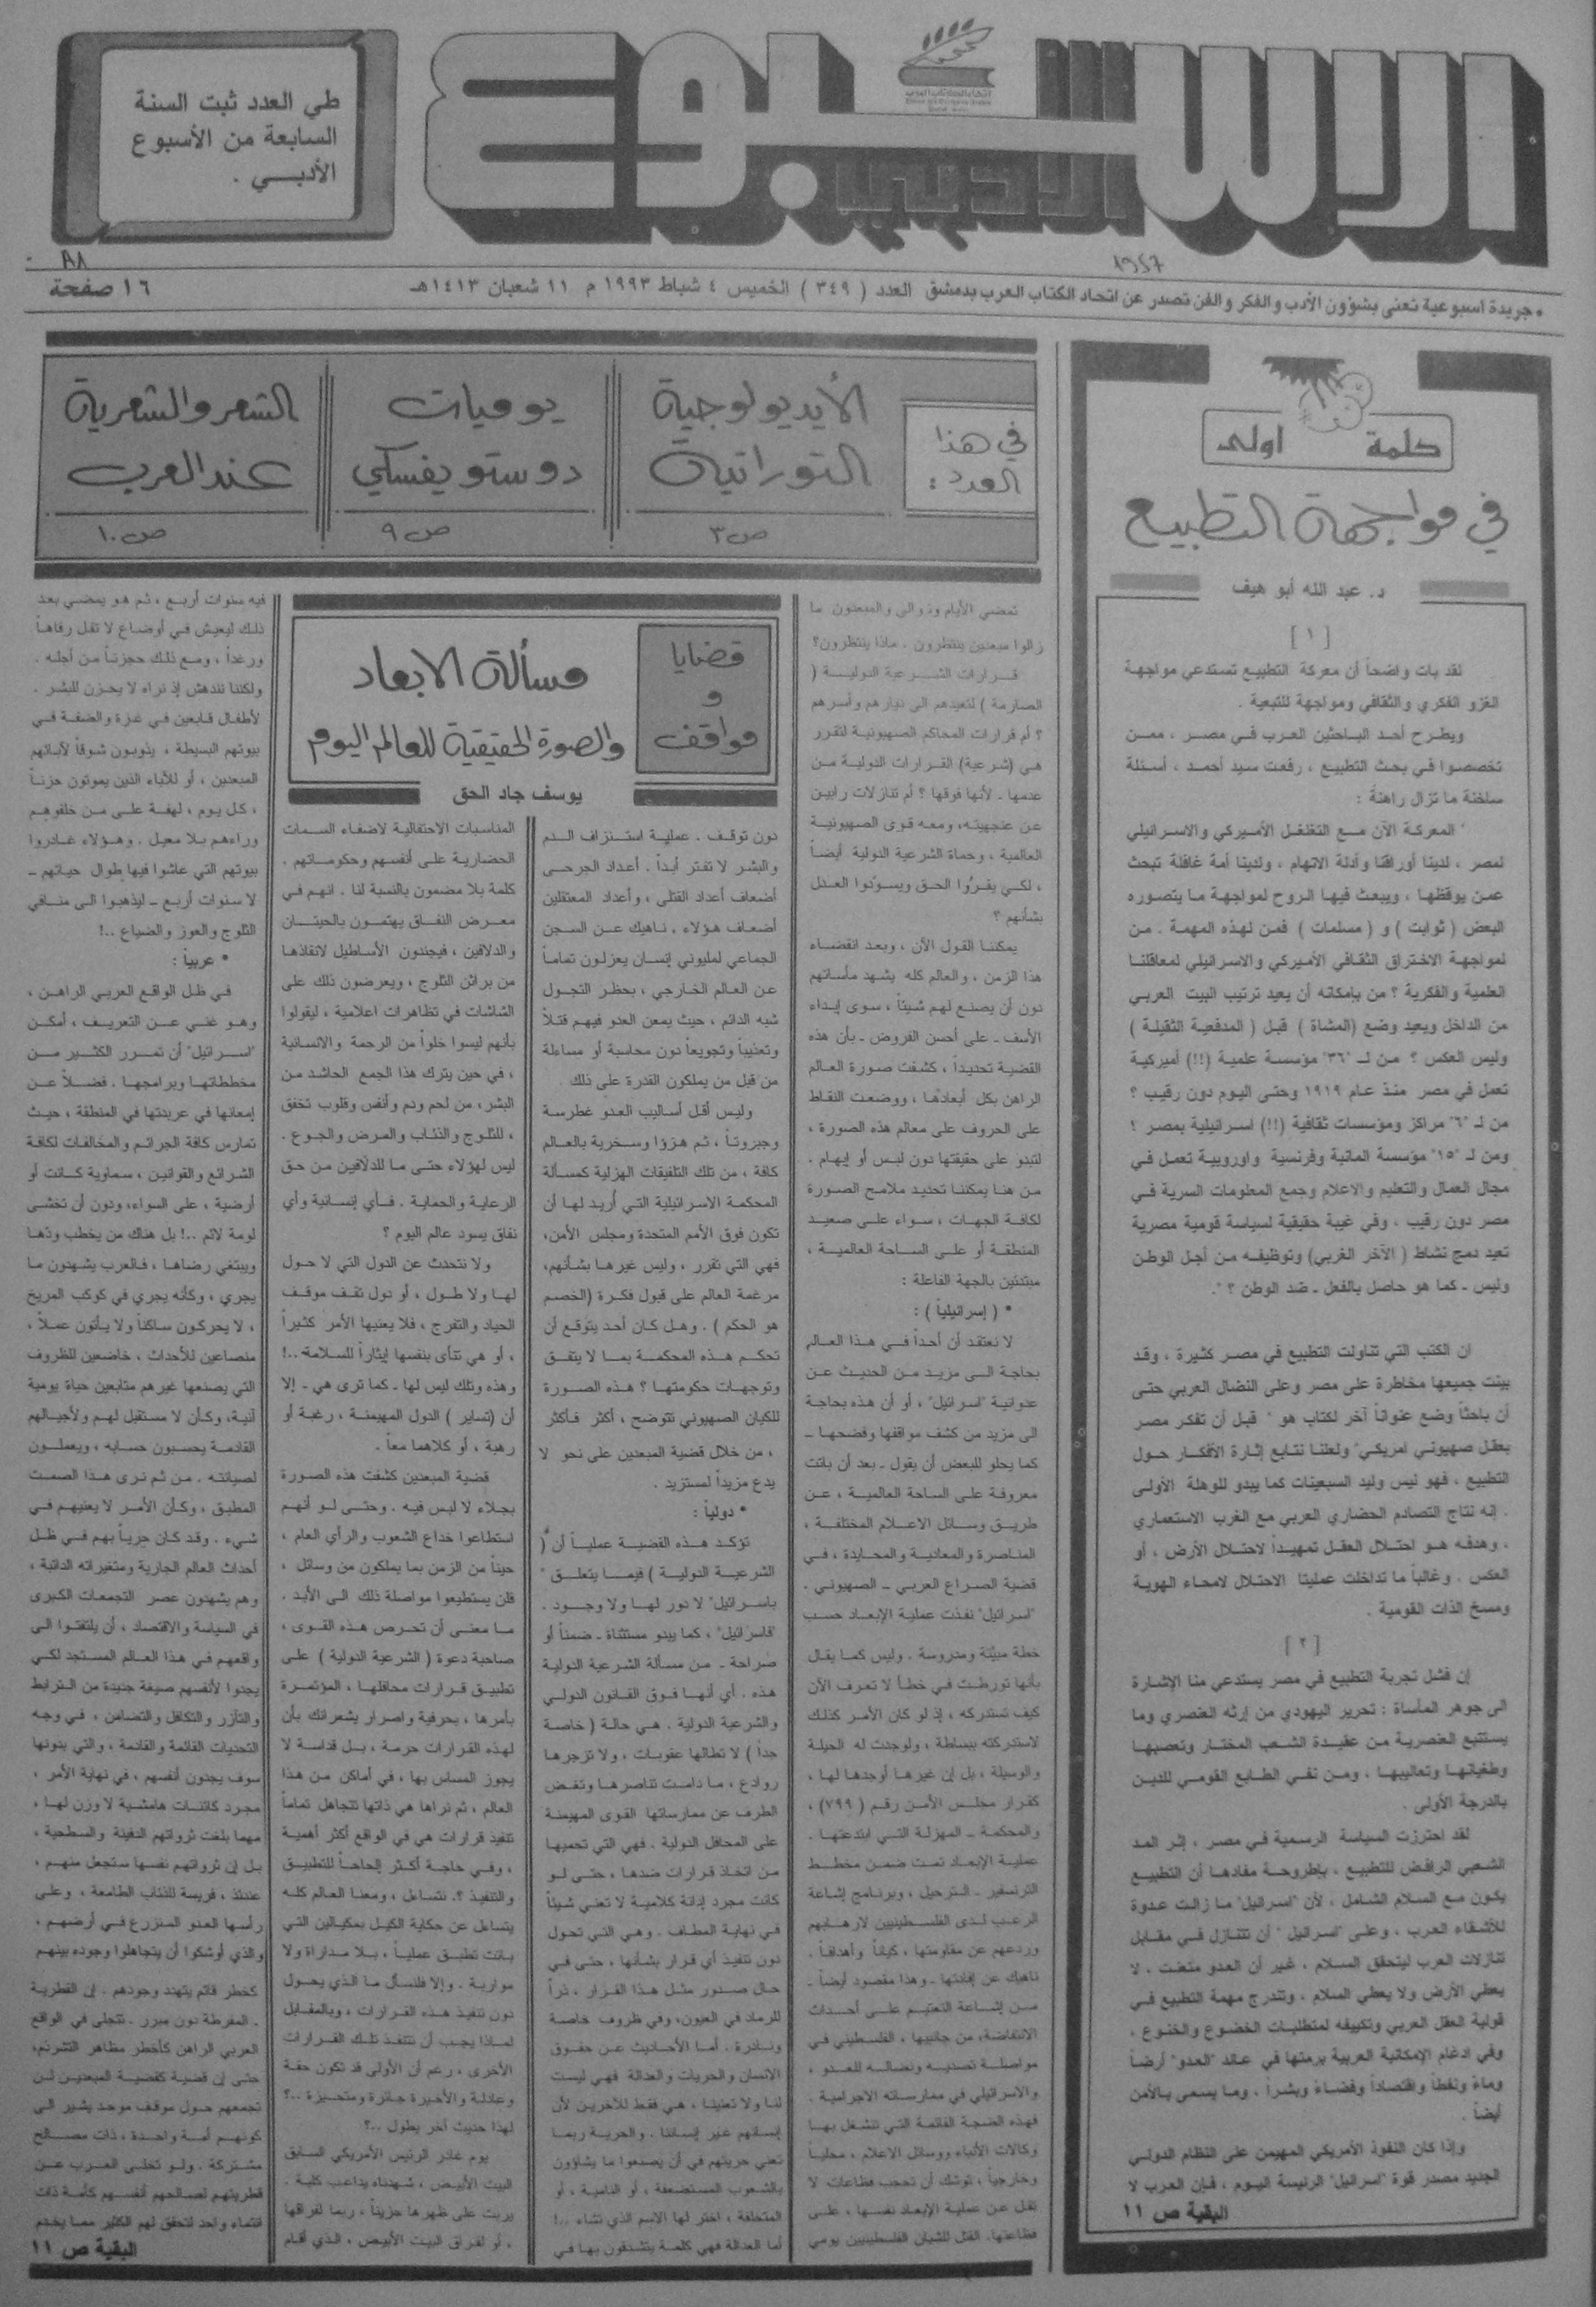 الأسبوع
الأدبي
طي العدد ثبت السنة
السابعة من الأسبوع
الأدبـــي .
جريدة اسبوعية تعنى بشؤون الأدب والفكر والفن تصدر عن اتحاد الكتاب العرب بدمشق العدد ( ٣٤٩ ) الخميس ٤ شباط ١٩٩٣ م ١١ شعبان ١٤١٣هـ
١٦ صفحة
في هذا
العدد :
الأيديولوجية
التوراتية
ص ٣
يوميات
دوستويفسكي
ص ٩
الشعر والشعرية
عند العرب
ص ١٠
كلمة اولى
في مواجهة التطبيع
د. عبد الله أبو هيف
[ ١ ]
لقد بات واضحاً أن معركة التطبيع تستدعي مواجهة
الغزو الفكري والثقافي ومواجهة للتبعية .
ويطرح أحد الباحثين العرب في مصر ، ممن
تخصصوا في بحث التطبيع ، رفعت سيد أحمد ، أسئلة
ساخنة ما تزال راهنة :
" المعركة الآن مع التغلغل الأميركي والاسرائيلي
لمصر ، لدينا أوراقنا وأدلة الاتهام ، ولدينا أمة غافلة تبحث
عمن يوقظها ، ويبعث فيها الروح لمواجهة ما يتصوره
البعض ( ثوابت ) و ( مسلمات ) فمن لهذه المهمة . من
لمواجهة الاختراق الثقافي الأميركي والاسرائيلي لمعاقلنا
العلمية والفكرية ؟ من بإمكانه أن يعيد ترتيب البيت العربي
من الداخل ويعيد وضع (المشاة ) قبل ( المدفعية الثقيلة )
وليس العكس ؟ من لـ "٣٦" مؤسسة علمية (!!) أميركية
تعمل في مصر منذ عام ١٩١٩ وحتى اليوم دون رقيب ؟
من لـ "٦" مراكز ومؤسسات ثقافية (!!) اسرائيلية بمصر ؟
ومن لـ "١٥" مؤسسة المانية وفرنسية واوروبية تعمل في
مجال العمال والتعليم والاعلام وجمع المعلومات السرية في
مصر دون رقيب ، وفي غيبة حقيقية لسياسة قومية مصرية
تعيد دمج نشاط ( الآخر الغربي) وتوظيفه من أجل الوطن
وليس ـ كما هو حاصل بالفعل ـ ضد الوطن ؟ ".
ان الكتب التي تناولت التطبيع في مصر كثيرة ، وقد
بينت جميعها مخاطرة على مصر وعلى النضال العربي حتى
أن باحثاً وضع عنواناً آخر لكتاب هو " قبل أن تفكر مصر
بعقل صهيوني امريكي" ولعلنا نتابع إثارة الأفكار حول
التطبيع ، فهو ليس وليد السبعينات كما يبدو للوهلة الأولى
. إنه نتاج التصادم الحضاري العربي مع الغرب الاستعماري
، وهدفه هو احتلال العقل تمهيداً لاحتلال الأرض ، أو
العكس . وغالباً ما تداخلت عمليتا الاحتلال لامحاء الهوية
ومسخ الذات القومية .
[ ٢ ]
إن فشل تجربة التطبيع في مصر يستدعي منا الإشارة
الى جوهر المأساة : تحرير اليهودي من إرثه العنصري وما
يستتبع العنصرية من عقيدة الشعب المختار وتعصبها
وطغيانها وتعاليها ، ومن نفي الطابع القومي للدين
بالدرجة الأولى .
لقد احترزت السياسة الرسمية في مصر ، إثر المد
الشعبي الرافض للتطبيع ، بإطروحة مفادها أن التطبيع
يكون مع السلام الشامل ، لأن "اسرائيل" ما زالت عدوة
للأشقاء العرب ، وعلى "اسرائيل " أن تتنازل في مقابل
تنازلات العرب ليتحقق السلام ، غير أن العدو متعنت ، لا
يعطي الأرض ولا يعطي السلام ، وتندرج مهمة التطبيع في
قولبة العقل العربي وتكييفه لمتطلبات الخضوع والخنوع ،
وفي ادغام الإمكانية العربية برمتها في عائد "العدو" أرضاً
وماءً ونفطاً واقتصاداً وفضاءً وبشراً ، وما يسمى بالأمن
أيضاً .
وإذا كان النفوذ الأمريكي المهيمن على النظام الدولي
الجديد مصدر قوة "اسرائيل" الرئيسة اليوم ، فإن العرب لا
البقية ص ١١
قضايا
و
مواقف
مسألة الابعاد
والصورة الحقيقية للعالم اليوم
يوسف جاد الحق
تمضي الأيام وتوالى والمبعدون ما
زالوا مبعدين ينتظرون . ماذا ينتظرون؟
قـرارات الشـرعية الدوليـة (
الصارمة ) لتعيدهم الى ديارهم وأسرهم
؟ أم قرارات المحاكم الصهيونية لتقرر
هي (شرعية) القرارات الدولية من
عدمها ـ لأنها فوقها ؟ أم تنازلات رابين
عن عنجهيته، ومعه قوى الصهيونية
العالمية ، وحماة الشرعية الدولية أيضاً
، لكي يقرّوا الحق ويسوّدوا العدل
بشأنهم ؟
يمكننا القول الآن ، وبعد انقضاء
هذا الزمن ، والعالم كله يشهد مأساتهم
دون أن يصنع لهم شيئاً ، سوى إبداء
الأسف ـ على أحسن الفروض ـ بأن هذه
القضية تحديداً ، كشفت صورة العالم
الراهن بكل أبعادها ، ووضعت النقاط
على الحروف على معالم هذه الصورة ،
لتبدو على حقيقتها دون لبس أو إيهام .
من هنا يمكننا تحديد ملامح الصورة
لكافة الجهات ، سواء على صعيد
المنطقة أو على الساحة العالمية ،
مبتدئين بالجهة الفاعلة :
* ( إسرائيلياً ) :
لا نعتقد أن أحداً في هذا العالم
بحاجة الى مزيد من الحديث عن
عدوانية "اسرائيل" ، أو أن هذه بحاجة
الى مزيد من كشف مواقفها وفضحها ـ
كما يحلو للبعض أن يقول ـ بعد أن باتت
معروفة على الساحة العالمية ، عن
طريق وسائل الاعلام المختلفة ،
المناصرة والمعادية والمحايدة ، في
قضية الصراع العربي ـ الصهيوني .
"اسرائيل" نفذت عملية الإبعاد حسب
خطة مبيّتة ومدروسة . وليس كما يقال
بأنها تورطت في خطأ لا تعرف الآن
كيف تستدركه ، إذ لو كان الأمر كذلك
لاستدركته ببساطة ، ولوجدت له الحيلة
والوسيلة ، بل إن غيرها أوجدها لها ،
كقرار مجلس الأمن رقم ( ٧٩٩) ،
والمحكمة ـ المهزلة التي ابتدعتها .
عملية الإبعاد تمت ضمن مخطط
الترنسفير ـ الترحيل ، وبرنامج إشاعة
الرعب لدى الفلسطينيين لارهابهم
وردعهم عن مقاومتها ، كياناً وأهدافاً .
ناهيك عن إفادتها ـ وهذا مقصود أيضاً ـ
من إشاعة التعتيم على أحداث
الانتفاضة، من جانبها ، الفلسطيني في
مواصلة تصديه ونضاله للعدو ،
والاسرائيلي في ممارساته الاجرامية .
فهذه الضجة القائمة التي تنشغل بها
وكالات الأنباء ووسائل الاعلام ، محلياً
وخارجياً ، توشك أن تحجب فظاعات لا
تقل عن عملية الإبعاد نفسها ، على
فظاعتها. القتل للشبان الفلسطينيين يومي
دون توقف . عملية استنزاف الدم
والبشر لا تفتر أبداً . أعداد الجرحى
أضعاف أعداد القتلى ، وأعداد المعتقلين
أضعاف هؤلاء . ناهيك عن السجن
الجماعي لمليوني إنسان يعزلون تماماً
عن العالم الخارجي ، بحظر التجول
شبه الدائم ، حيث يمعن العدو فيهم قتلاً
وتعذيباً وتجويعاً دون محاسبة أو مساءلة
من قبل من يملكون القدرة على ذلك .
وليس أقل أساليب العدو غطرسة
وجبروتاً ، ثم هزؤا وسخرية بالعالم
كافة ، من تلك التلفيقات الهزلية كمسألة
المحكمة الاسرائيلية التي أريد لها أن
تكون فوق الأمم المتحدة ومجلس الأمن،
فهي التي تقرر ، وليس غيرها بشأنهم،
مرغمة العالم على قبول فكرة (الخصم
هو الحكم ) . وهل كان أحد يتوقع أن
تحكم هذه المحكمة بما لا يتفق
وتوجهات حكومتها ؟ هذه الصورة
للكيان الصهيوني تتوضح ، أكثر فأكثر
، من خلال قضية المبعدين على نحو لا
يدع مزيداً لمستزيد .
* دولياً :
تؤكد هذه القضية عملياً أن (
الشرعية الدولية ) فيما يتعلق "
باسرائيل" لا دور لها ولا وجود .
"فاسرائيل" ، كما يبدو مستثناة ـ ضمناً أو
صراحة ـ من مسألة الشرعية الدولية
هذه . أي أنها فوق القانون الدولي
والشرعية الدولية . هي حالة ( خاصة
جداً ) لا تطالها عقوبات ، ولا تزجرها
روادع ، ما دامت تناصرها وتغض
الطرف عن ممارساتها القوى المهيمنة
على المحافل الدولية . فهي التي تحميها
من اتخاذ قرارات ضدها ، حتى لو
كانت مجرد إدانة كلامية لا تعني شيئاً
في نهاية المطاف . وهي التي تحول
دون تنفيذ أي قرار بشأنها ، حتى في
حال صدور مثل هذا القرار ، ذراً
للرماد في العيون، وفي ظروف خاصة
ونادرة . أما الأحاديث عن حقوق
الانسان والحريات والعدالة فهي ليست
لنا ولا تعنينا ، هي فقط للآخرين لأن
إنسانهم غير إنساننا . والحرية ربما
تعني حريتهم في أن يصنعوا ما يشاؤون
بالشعوب المستضعفة ، أو النامية ، أو
المتخلفة ، اختر لها الاسم الذي تشاء ..!
أما العدالة فهي كلمة يتشدقون بها في
المناسبات الاحتفالية لاضفاء السمات
الحضارية على أنفسهم وحكوماتهم .
كلمة بلا مضمون بالنسبة لنا . انهم في
معرض النفاق يهتمون بالحيتان
والدلافين ، فيجندون الأساطيل لانقاذها
من براثن الثلوج ، ويعرضون ذلك على
الشاشات في تظاهرات اعلامية ، ليقولوا
بأنهم ليسوا خلواً من الرحمة والانسانية
، في حين يترك هذا الجمع الحاشد من
البشر، من لحم ودم وأنفس وقلوب تخفق
، للثلوج والذئاب والمرض والجوع .
ليس لهؤلاء حتى ما للدلافين من حق
الرعاية والحماية . فأي إنسانية وأي
نفاق يسود عالم اليوم ؟
ولا نتحدث عن الدول التي لا حول
لها ولا طول ، أو دول تقف موقف
الحياد والتفرج ، فلا يعنيها الأمر كثيراً
، أو هي تنأى بنفسها إيثاراً للسلامة ..!
وهذه وتلك ليس لها ـ كما ترى هي ـ إلا
أن (تساير ) الدول المهيمنة ، رغبة أو
رهبة ، أو كلاهما معاً .
قضية المبعدين كشفت هذه الصورة
بجلاء لا لبس فيه . وحتى لو أنهم
استطاعوا خداع الشعوب والرأي العام ،
حيناً من الزمن بما يملكون من وسائل ،
فلن يستطيعوا مواصلة ذلك الى الأبد .
ما معنى أن تحرص هذه القوى ،
صاحبة دعوة ( الشرعية الدولية ) على
تطبيق قرارات محافلها ، المؤتمرة
بأمرها ، بحرفية واصرار يشعرانك بأن
لهذه القرارات حرمة ، بل قداسة لا
يجوز المساس بها ، في أماكن من هذا
العالم ، ثم نراها هي ذاتها تتجاهل تماماً
تنفيذ قرارات هي في الواقع أكثر أهمية
، وفي حاجة أكثر إلحاحاً للتطبيق
والتنفيذ ؟. نتساءل ، ومعنا العالم كله
يتساءل عن حكاية الكيل بمكيالين التي
باتت تطبق عملياً ، بلا مداراة ولا
مواربة . وإلا فلنسأل ما الذي يحول
دون تنفيذ هذه القرارات ، وبالمقابل
لماذا يجب أن تنتفذ تلك القرارات
الأخرى ، رغم أن الأولى قد تكون حقة
وعادلة والأخيرة جائرة ومتحيزة ..؟
لهذا حديث آخر يطول ..؟
يوم غادر الرئيس الأمريكي السابق
البيت الأبيض ، شهدناه يداعب كلبة .
يربت على ظهرها حزيناً ، ربما لفراقها
، أو لفراق البيت الأبيض ، الذي أقام
فيه سنوات أربع ، ثم هو يمضي بعد
ذلك ليعيش في أوضاع لا تقل رفاهاً
ورغداً ، ومع ذلك حجزناً من أجله .
ولكننا نندهش إذ نراه لا يحزن للبشر .
لأطفال قابعين في غزة والضفة في
بيوتهم البسيطة ، يذوبون شوقاً لآبائهم
المبعدين ، أو للآباء الذين يموتون حزناً
، كل يوم ، لهفة على من خلفوهم
وراءهم بلا معيل . وهؤلاء غادروا
بيوتهم التي عاشوا فيها طوال حياتهم ـ
لا سنوات أربع ـ ليذهبوا الى منافي
الثلوج والعوز والضياع ..!
* عربياً :
في ظل الواقع العربي الراهن ،
وهو غني عن التعريف ، أمكن
"اسرائيل" أن تمرر الكثير من
مخططاتها وبرامجها . فضلاً عن
إمعانها في عربدتها في المنطقة ، حيث
تمارس كافة الجرائم والمخالفات لكافة
الشرائع والقوانين ، سماوية كانت أو
أرضية ، على السواء، ودون أن تخشى
لومة لائم ..! بل هناك من يخطب ودّها
ويبتغي رضاها ، فالعرب يشهدون ما
يجري ، وكأنه يجري في كوكب المريخ
، لا يحركون ساكناً ولا يأتون عملاً ،
منصاعين للأحداث ، خاضعين للظروف
التي يصنعها غيرهم متابعين حياة يومية
آنية، وكأن لا مستقبل لهم ولأجيالهم
القادمة يحسبون حسابه ، ويعملون
لصيانته . من ثم نرى هذا الصمت
المطبق ، وكأن الأمر لا يعنيهم في
شيء . وقد كان حرياً بهم في ظل
أحداث العالم الجارية ومتغيراته الدائبة ،
وهم يشهدون عصر التجمعات الكبرى
في السياسة والاقتصاد ، أن يلتفتوا الى
واقعهم في هذا العالم المستجد لكي
يجدوا لأنفسهم صيغة جديدة من الترابط
والتآزر والتكافل والتضامن ، في وجه
التحديات القائمة والقادمة ، والتي بدونها
سوف يجدون أنفسهم ، في نهاية الأمر ،
مجرد كائنات هامشية لا وزن لها ،
مهما بلغت ثرواتهم الدفينة والسطحية ،
بل إن ثرواتهم نفسها ستجعل منهم ،
عندئذ ، فريسة للذئاب الطامعة ، وعلى
رأسها العدو المنزرع في أرضهم ،
والذي أوشكوا أن يتجاهلوا وجوده بينهم
كخطر قائم يتهدد وجودهم . إن القطرية
ـ المفرطة دون مبرر ـ تتجلى في الواقع
العربي الراهن كأخطر مظاهر التشرذم،
حتى إن قضية كقضية المبعدين لن
تجمعهم حول موقف موحد يشير الى
كونهم أمة واحدة ، ذات مصالح
مشتركة . ولو تخلى العرب عن
قطريتهم لصالحهم أنفسهم كأمة ذات
انتماء واحد لتحقق لهم الكثير مما يخدم
البقية ص ١١